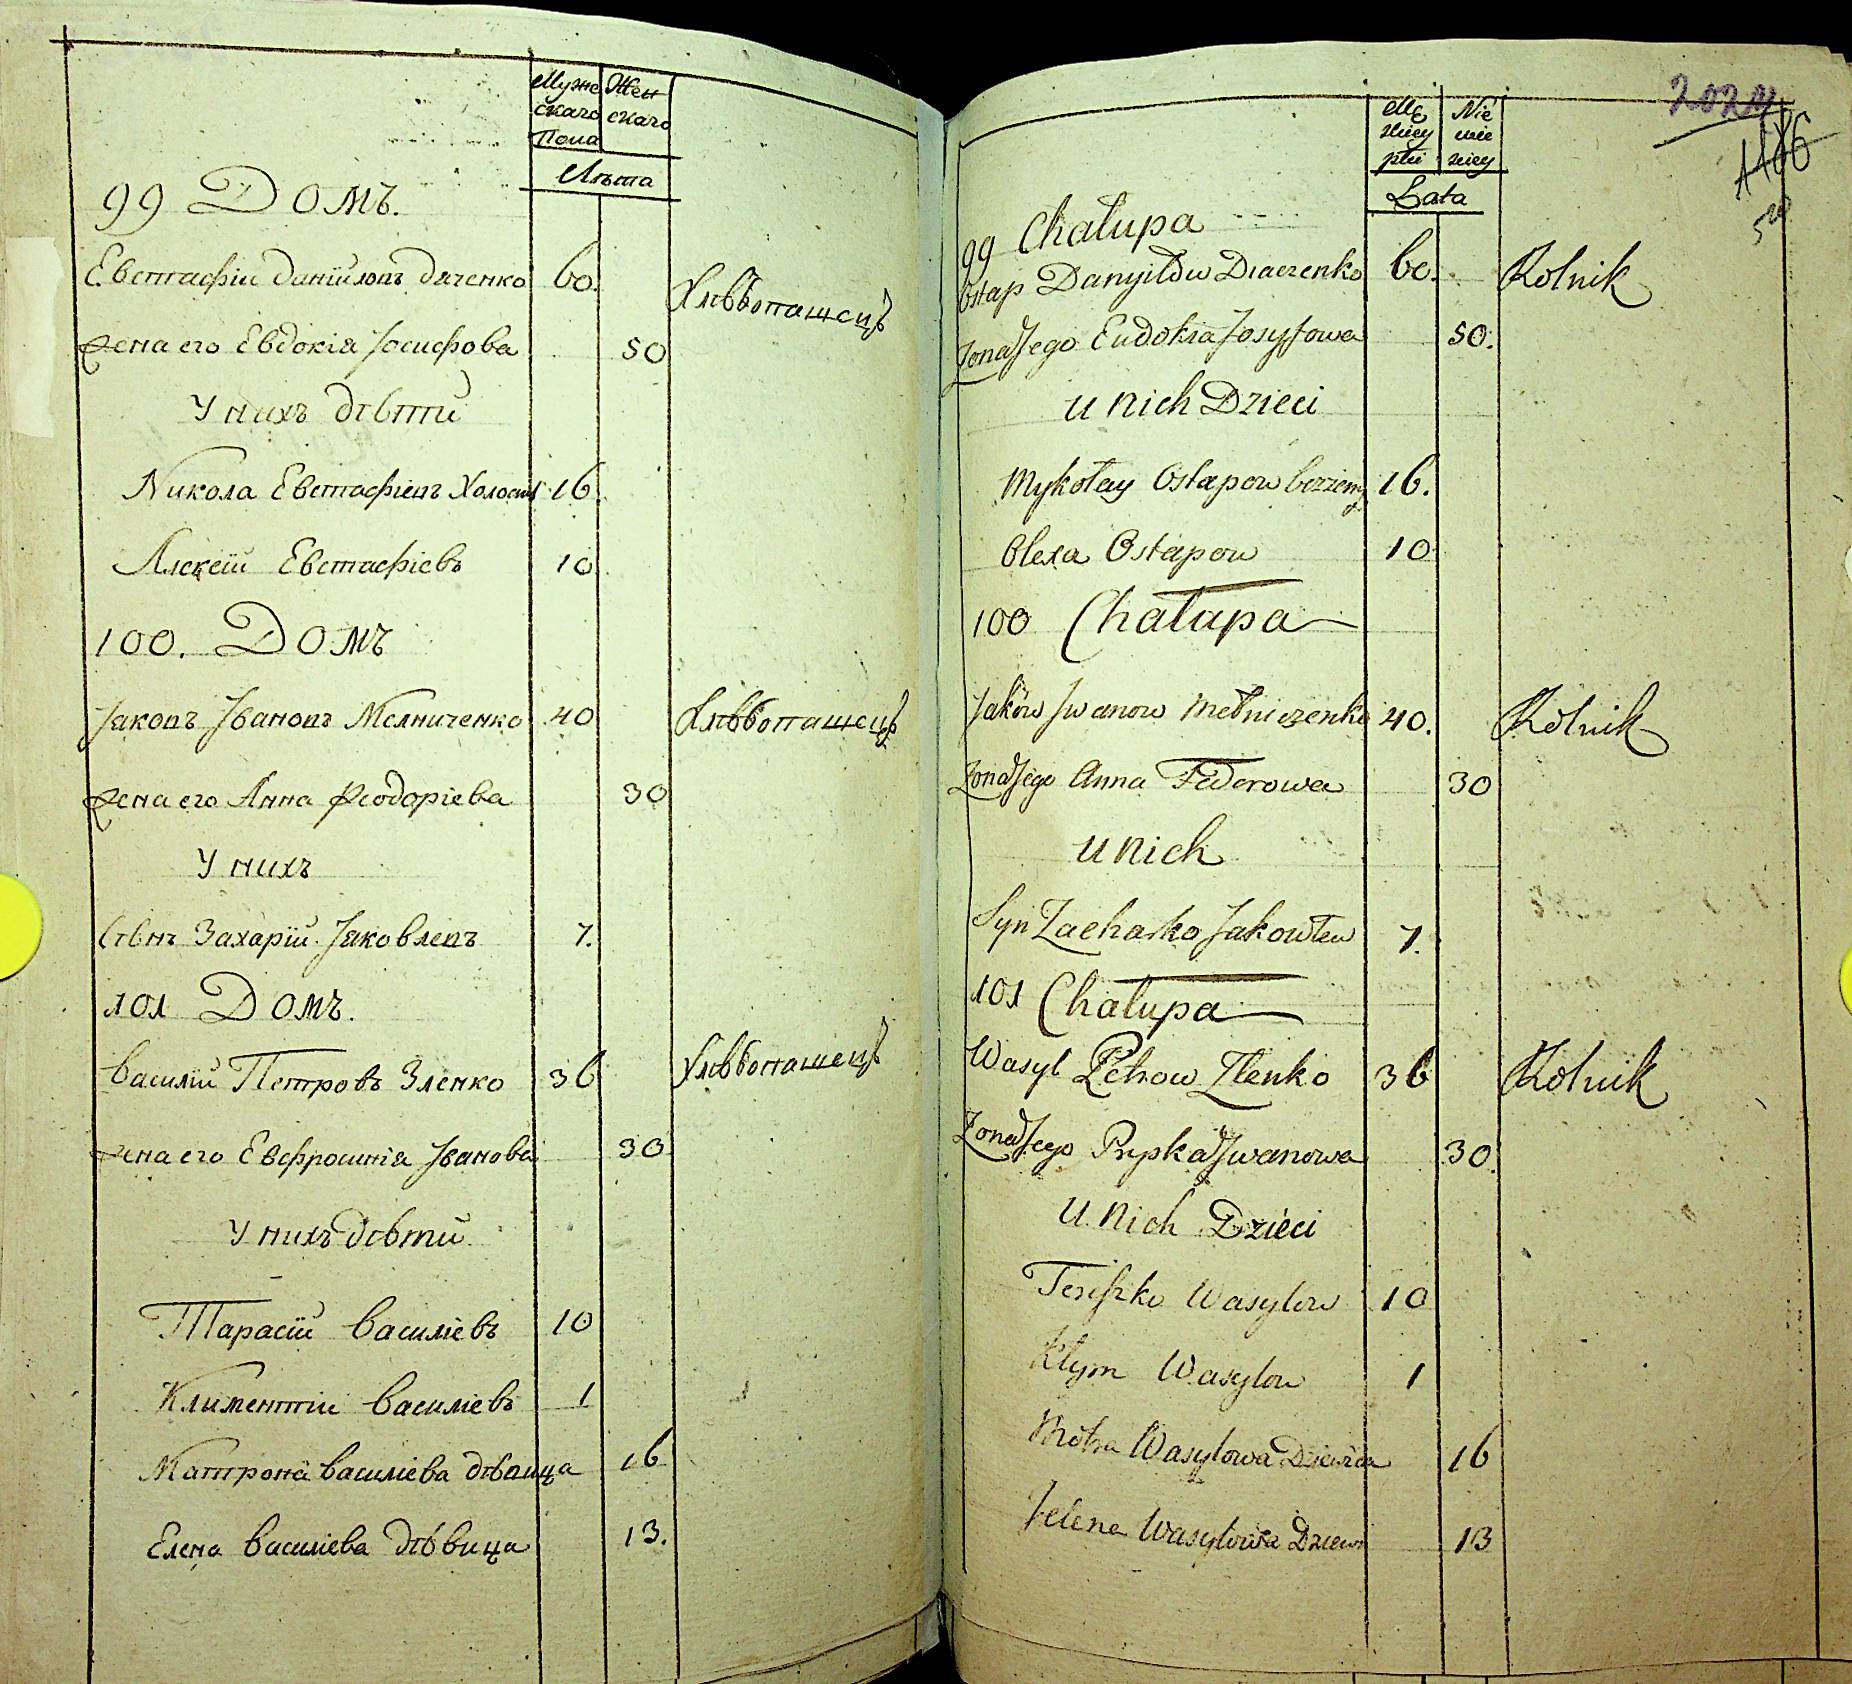 Муже Жен
скаго скаго
Пола
Лѣта
99 Домъ.
Евстафіи Даніиловъ Дяченко 60. Хлѣбопашецъ
жена его Евдокія Іосифова 50
У нихъ дѣти
Никола Евстафіевъ Холост 16.
Алексій Евстафіевъ 10.
100. Домъ
Іаковъ Івановъ Мелниченко 40 Хлѣбопашецъ
жена его Анна Феодоріева 30
У нихъ
Сынъ Захарій Іаковлевъ 7.
101 Домъ.
Василій Петровъ Зленко 36 Хлѣбопашецъ
жена его Евфросинія Іванова 30
У нихъ дѣти
Тарасій Василіевъ 10
Климентіи Василіевъ 1
Матрона Василіева дѣвица 16
Елена Василіева дѣвица 13.
2024
1166
Mę Nie
zkiey wie
płci skiey
Lata
99 Chałupa
Ostap Danyiłow Diaczenko 60. Rolnik
Zona Jego Eudokia Josyfowa 50.
u nich Dzieci
Mykołay Ostapow bezżenny 16.
Olexa Ostapow 10
100 Chałupa
Jaków Jwanow Mełniczenko 40. Rolnik
Zona Jego Anna Fedorowa 30
u nich
Syn Zacharko Jakowlew 7.
101 Chałupa
Wasyl Petrow Zlenko 36 Rolnik
Zona Jego Pryska Jwanowa 30.
u nich Dzieci
Wasylow 10
Kłym Wasylow 1
Motra Wasylowa Dziewka 16
Jelena Wasylowa Dziew 13